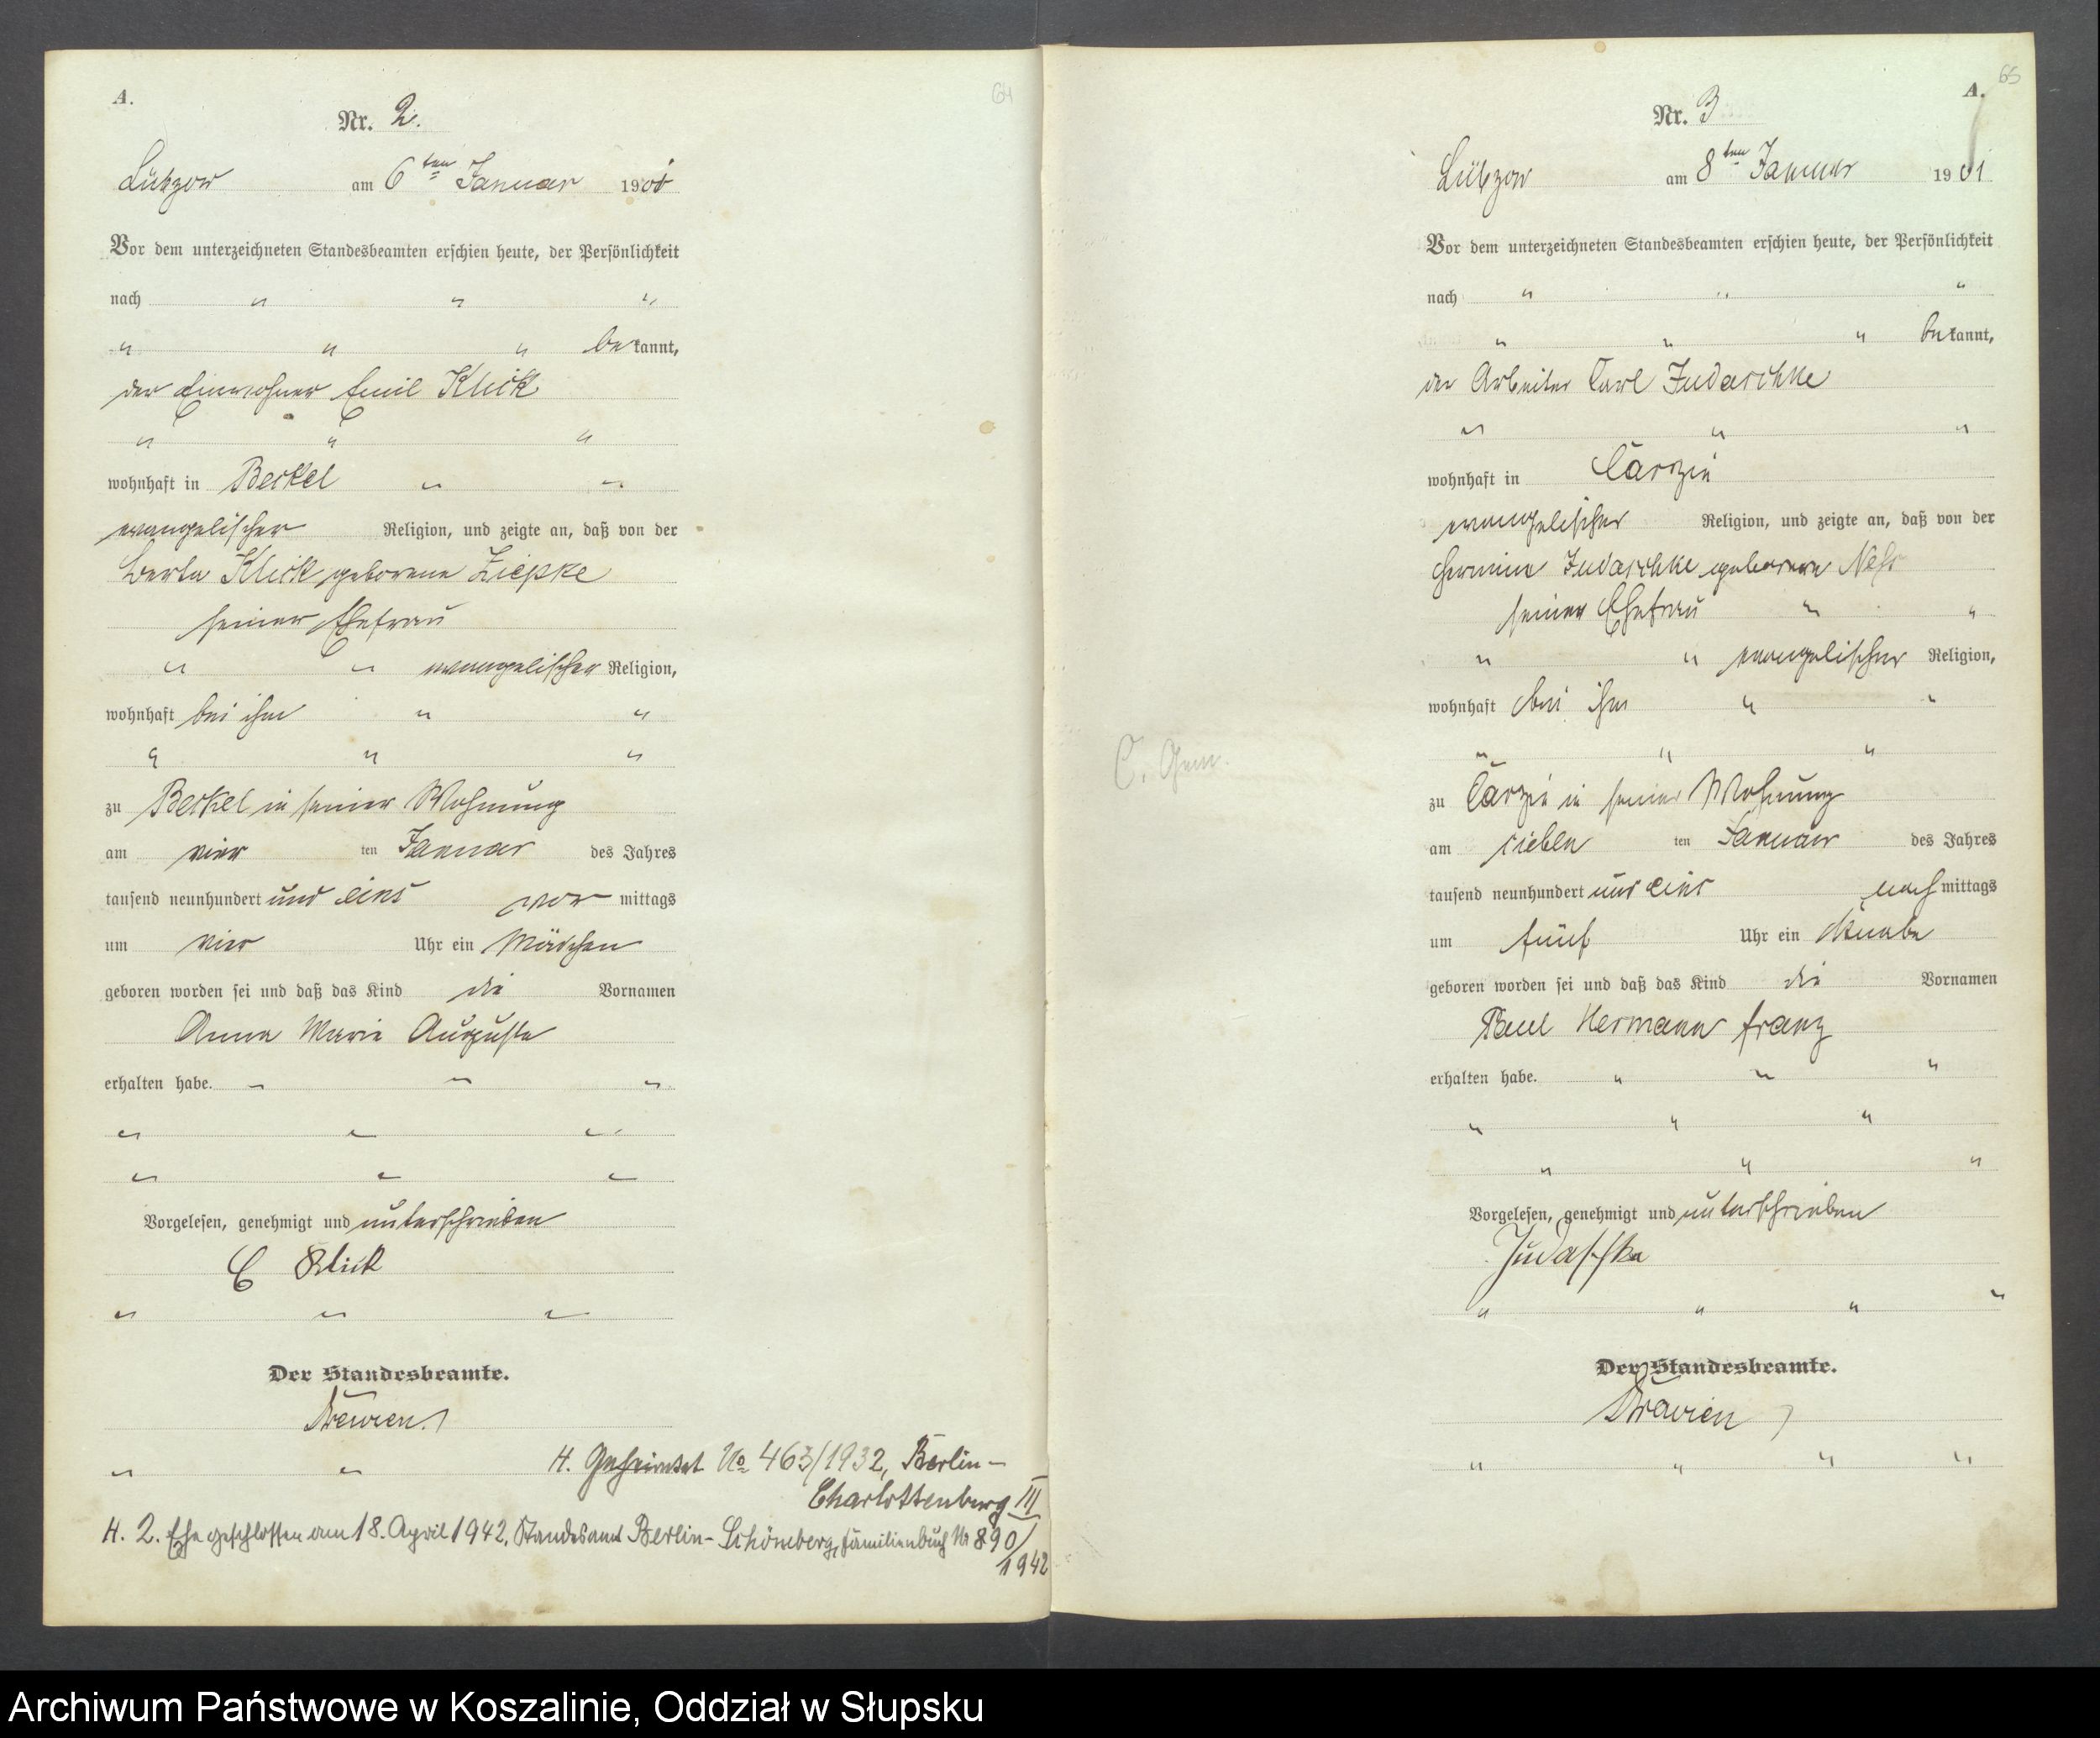 A.
64
Nr. 2.
Lübzow am 6ten Januar 1901
Vor dem unterzeichneten Standesbeamten erschien heute, der Persönlichkeit
nach " " "
" " " bekannt,
der Einwohner Emil Klick
" " "
wohnhaft in Beckel " "
evangelischer Religion, und zeigte an, daß von der
Klick geborene Ziepke
seiner Ehefrau
" " evangelischer Religion,
wohnhaft bei ihm " "
" " "
zu Beckel in seiner Wohnung
am vier ten Januar des Jahres
tausend neunhundert und eins vor mittags
um vier Uhr ein Mädchen
geboren worden sei und daß das Kind die Vornamen
Anna Marie Auguste
erhalten habe. " " "
" " "
" " "
Vorgelesen, genehmigt und unterschrieben
E Klick
" " "
Der Standesbeamte.
" "
H. Geheiratet No 463/1932, Berlin-
Charlottenburg III
H. 2. Ehe geschlossen am 18. April 1942. Standesamt Berlin-Schöneberg, Familienbuch Nr 890/
1942
65
A.
Nr. 3
Lübzow am 8ten Januar 1901
Vor dem unterzeichneten Standesbeamten erschien heute, der Persönlichkeit
nach " " "
" " " bekannt,
der Arbeiter Carl Judaschke
" " "
wohnhaft in Carzin
evangelischer Religion, und zeigte an, daß von der
Judaschke geborene
seiner Ehefrau " "
" " evangelischer Religion,
wohnhaft bei ihm " "
" " "
C. Gem.
zu Carzin in seiner Wohnung
am sieben ten Januar des Jahres
tausend neunhundert und eins nach mittags
um fünf Uhr ein Knabe
geboren worden sei und daß das Kind die Vornamen
Paul Hermann Franz
erhalten habe. " " "
" " "
" " "
Vorgelesen, genehmigt und unterschrieben
Judaschke
" " " "
Der Standesbeamte.
" " " "
Archiwum Państwowe w Koszalinie, Oddział w Słupsku